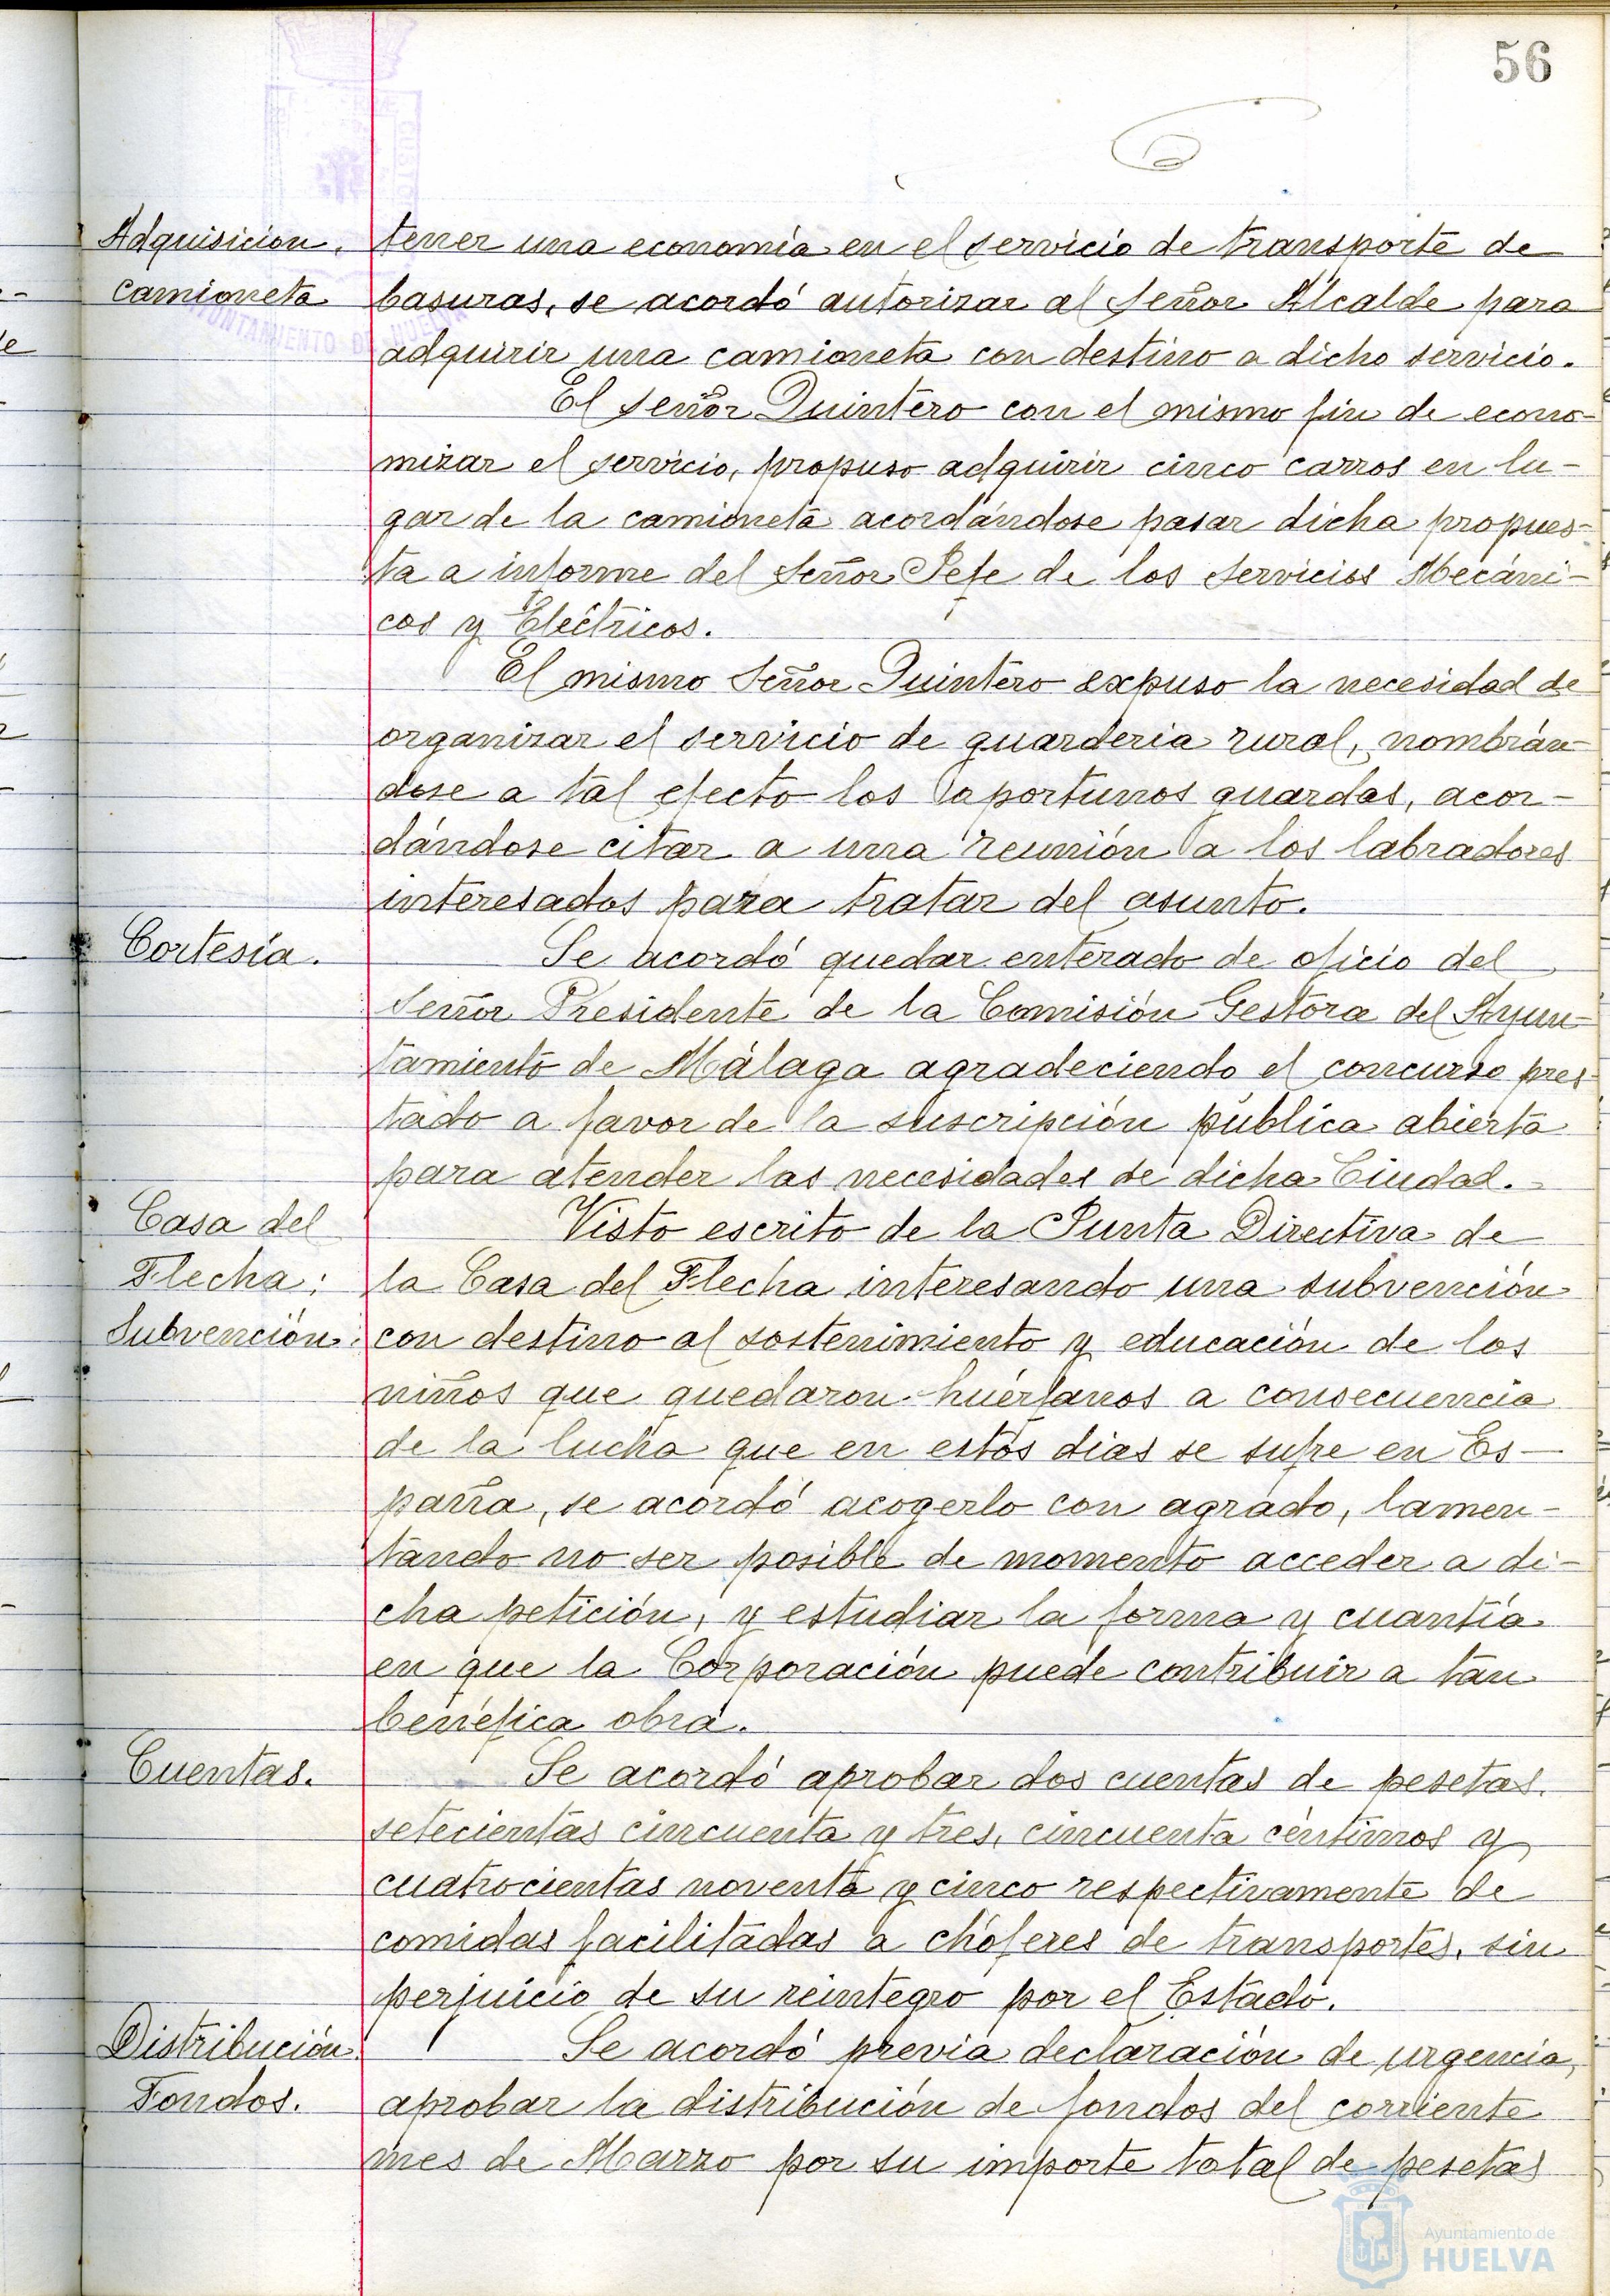 56
Adquisición.
camioneta
tener una economía en el servicio de transporte de
basuras, se acordó autorizar al Señor Alcalde para
adquirir una camioneta con destino a dicho servicio.
El señor Quintero con el mismo fin de econo-
mizar el servicio, propuso adquirir cinco carros en lu-
gar de la camioneta acordándose pasar dicha propues-
ta a informe del Señor Jefe de los Servicios Mecáni-
cos y Eléctricos.
El mismo Señor Quintero expuso la necesidad de
organizar el servicio de guarderia rural, nombrán-
dose a tal efecto los oportunos guardas, acor-
dándose citar a una reunión a los labradores
interesados para tratar del asunto.
Cortesía.
Se acordó quedar enterado de oficio del
Señor Presidente de la Comisión Gestora del Ayun-
tamiento de Málaga agradeciendo el concurso pres-
tado a favor de la suscripción pública abierta
para atender las necesidades de dicha Ciudad.
Casa del
Flecha:
Subvención.
Visto escrito de la Junta Directiva de
la Casa del Flecha interesando una subvención
con destino al sostenimiento y educación de los
niños que quedaron huérfanos a consecuencia
de la lucha que en estos dias se sufre en Es-
paña, se acordó acogerlo con agrado, lamen-
tando no ser posible de momento acceder a di-
cha petición, y estudiar la forma y cuantía
en que la Corporación puede contribuir a tan
benéfica obra.
Cuentas.
Se acordó aprobar dos cuentas de pesetas
setecientas cincuenta y tres, cincuenta céntimos y
cuatrocientas noventa y cinco respectivamente de
comidas facilitadas a chóferes de transportes, sin
perjuicio de su reintegro por el Estado.
Distribución
Fondos.
Se acordó previa declaración de urgencia,
aprobar la distribución de fondos del corriente
mes de Marzo por su importe total de pesetas
AYUNTAMIENTO DE HUELVA
Ayuntamiento de
HUELVA